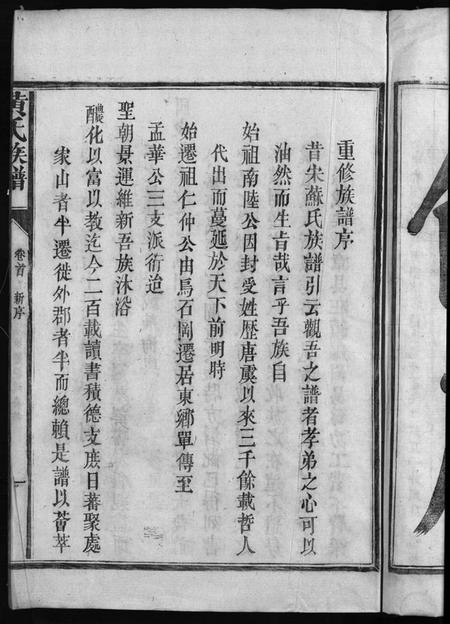 重修族譜序
昔宋蘇氏族譜引云觀吾之譜者孝弟之心可以
油然而生旨哉言乎吾族自
始祖南陸公因封受姓歷唐虞以來三千餘載哲人
代出而蔓延於天下前明時
始遷祖仁仲公由馬石岡遷居東鄉單傳至
孟華公三支派衍迨
聖朝景運維新吾族沐浴
醲化以富以教迄今二百載讀書積德支庶日蕃聚處
家山者半遷徙外郡者半而總賴是譜以薈萃
黄氏族譜
卷首 新序
一